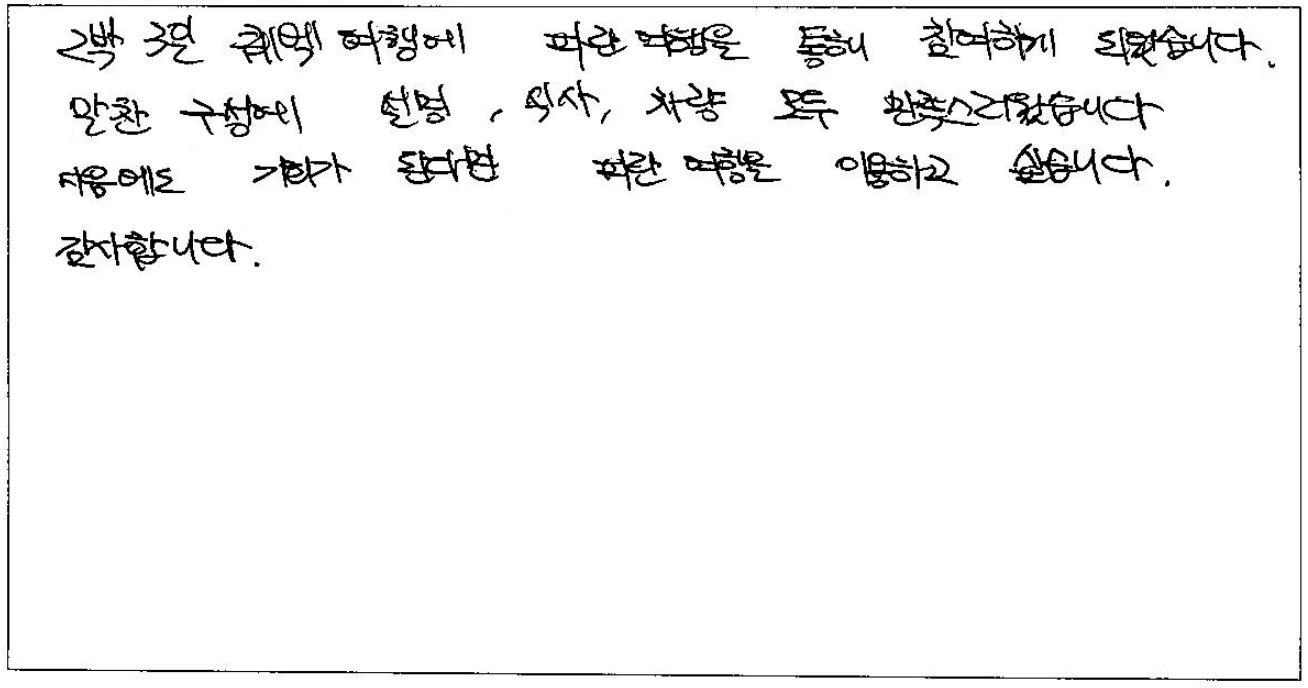 2박 3일 퀘벡 여행에 파란 여행을 통해 참여하게 되었습니다.
알찬 구성에 설명, 식사, 차량 모두 만족스러웠습니다
다음에도 기회가 된다면 파란 여행을 이용하고 싶습니다.
감사합니다.